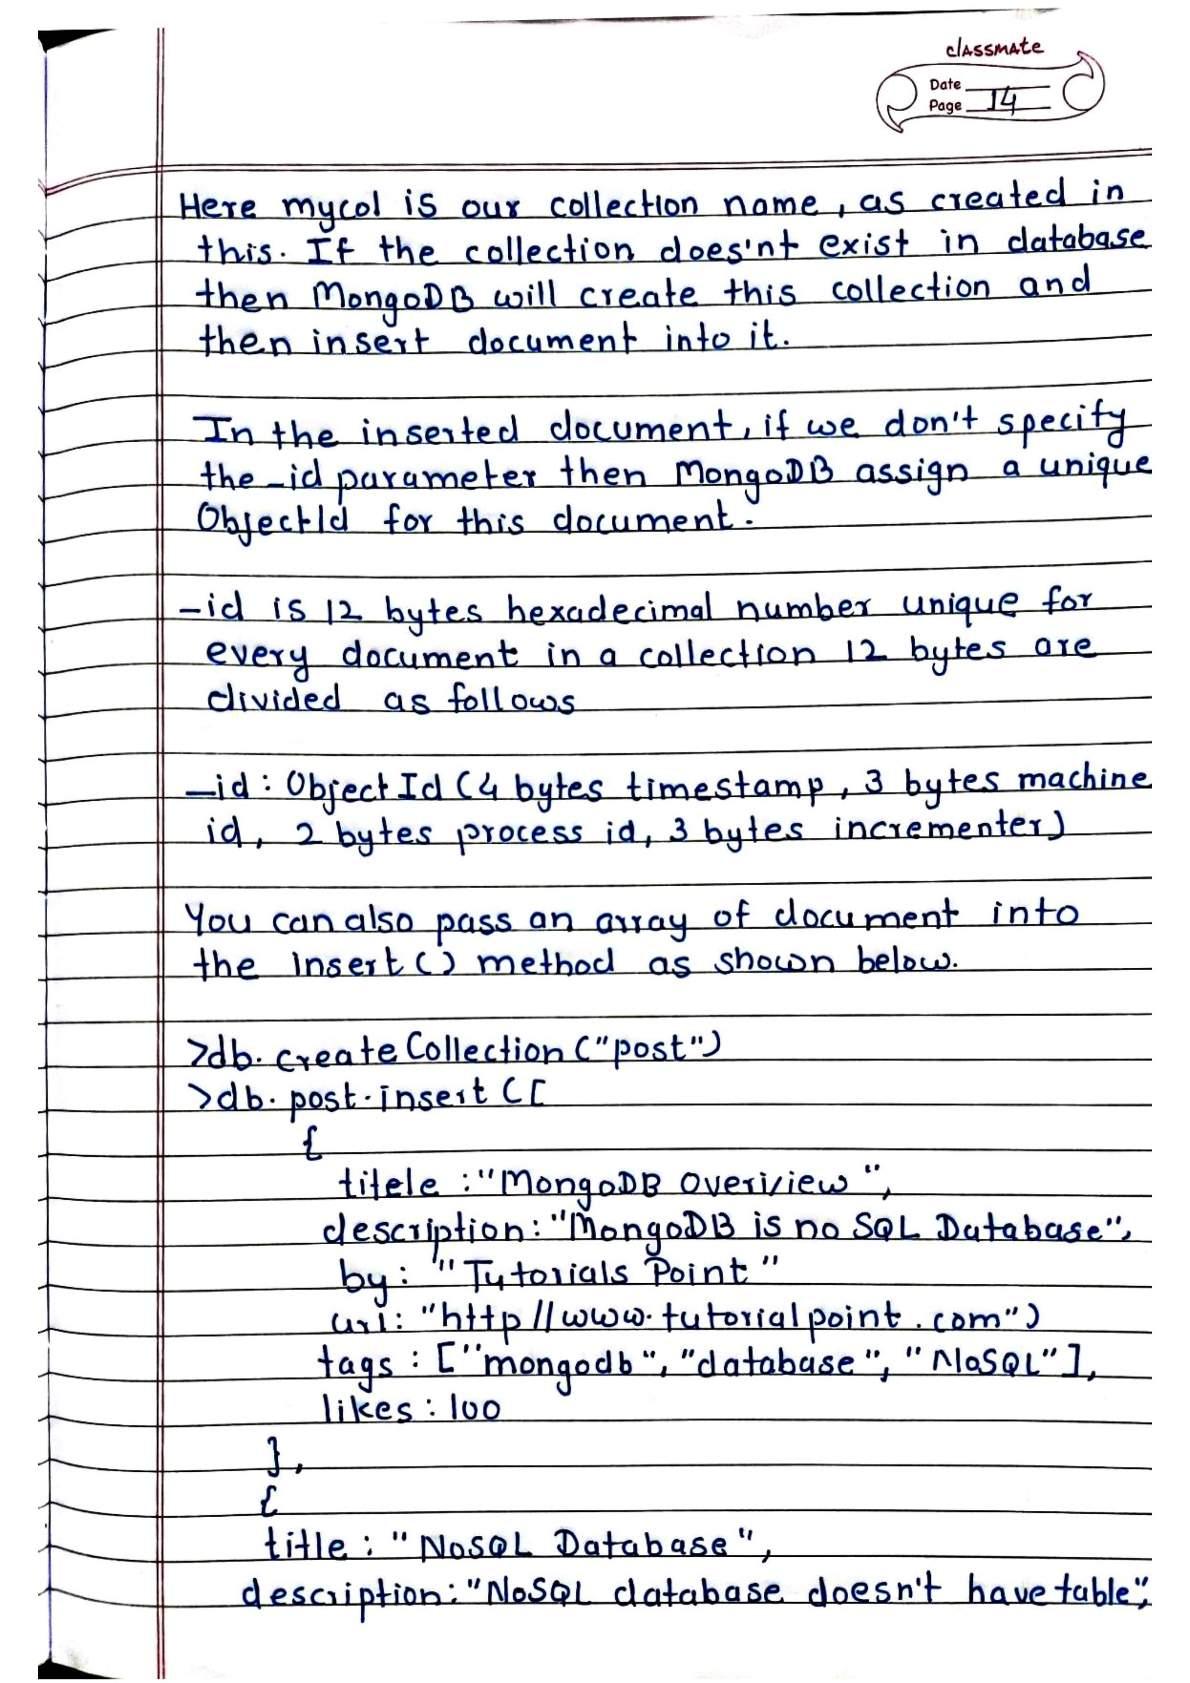 classmate
Date
Page 14
Here mycol is our collection name, as created in
this. If the collection does'nt exist in database
then MongoDB will create this collection and
then insert document into it.
In the inserted document, if we don't specify
the _id parameter then MongoDB assign a unique
ObjectId for this document.
_id is 12 bytes hexadecimal number unique for
every document in a collection 12 bytes are
divided as follows
_id : Object Id (4 bytes timestamp, 3 bytes machine
id, 2 bytes process id, 3 bytes incrementer)
You can also pass an array of document into
the insert () method as shown below.
>db. create Collection ("post")
>db. post. insert ([
{
titele : "MongoDB Overiview",
description: "MongoDB is no SQL Database",
by: "Tutorials Point"
url: "http//www.tutorialpoint.com")
tags : ["mongodb", "database", "NoSQL"],
likes : 100
},
{
title : "NoSQL Database",
description: "NoSQL database doesn't have table",